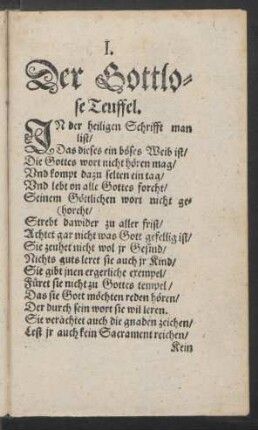 I.
Der Gottlo-
se Teuffel.
IN der heiligen Schrifft man
list/
Das dieses ein böses Weib ist/
Die Gottes wort nicht hören mag/
Vnd kompt dazu selten ein tag/
Vnd lebt on alle Gottes forcht/
Seinem Göttlichen wort nicht ge-
(horcht/
Strebt dawider zu aller frist/
Achtet gar nicht was Gott gefellig ist/
Sie zeuhet nicht wol jr Gesind/
Nichts guts leret sie auch jr Kind/
Sie gibt jnen ergerliche exempel/
Füret sie nicht zu Gottes tempel/
Das sie Gott möchten reden hören/
Der durch sein wort sie wil leren.
Sie verachtet auch die gnaden zeichen/
Lest jr auch kein Sacrament reichen/
Kein